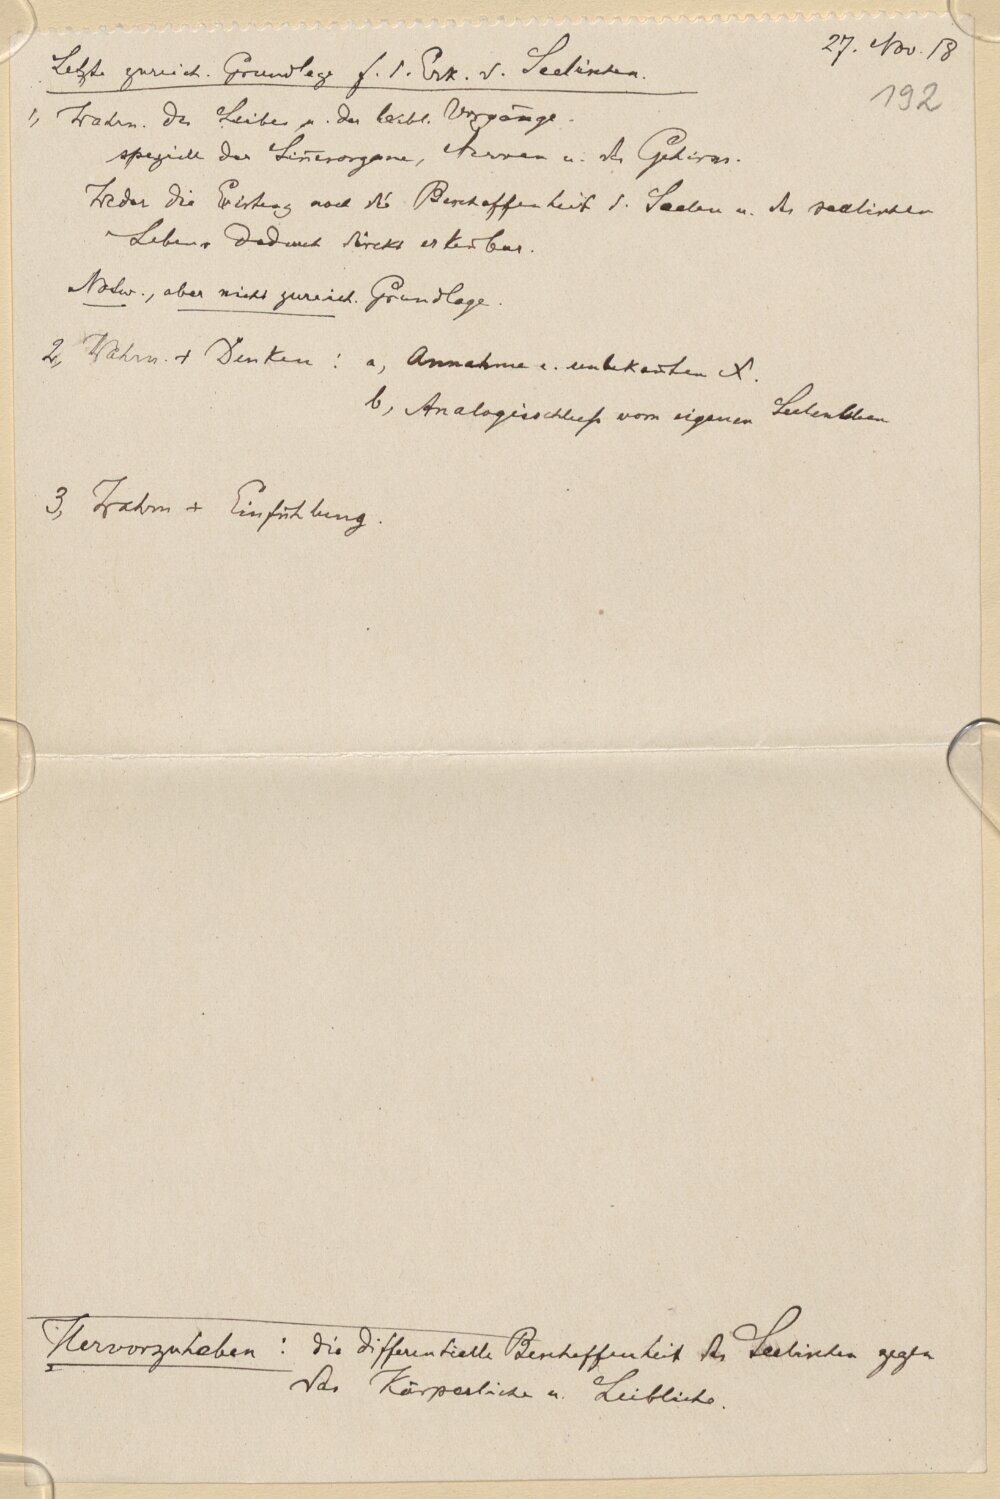 27. Nov. 18
192
Letzte zureich. Grundlage f. d. Erk. d. Seelischen.
1, Wahrn. des Leibes u. der leibl. Vorgänge.
speziell der Sinnesorgane, Nerven u. des Gehirns.
Weder die Existenz noch die Beschaffenheit d. Seelen u. des seelischen
Lebens dadurch direkt erkennbar.
Notw., aber nicht zureich. Grundlage.
2, Wahrn. + Denken : a, Annahme e. unbekannten X.
b, Analogieschluss vom eigenen Seelenleben
3, Wahrn + Einfühlung.
Hervorzuheben : die differentielle Beschaffenheit des Seelischen gegen
das Körperliche u. Leibliche.